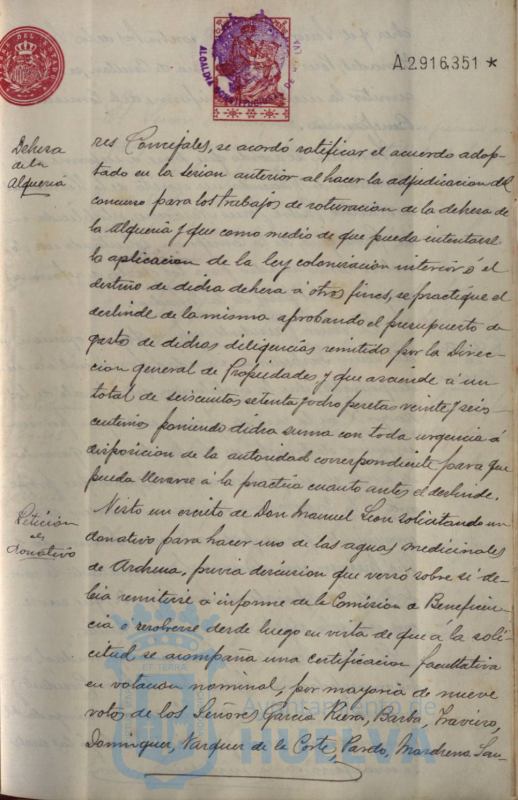 A.2.916,351 *
Dehesa
de la
Alquería
res Concejales, se acordó ratificar el acuerdo adop-
tado en la sesion anterior al hacer la adjudicacion del
concurso para los trabajos de roturacion de la dehesa de
la Alqueria y que como medio de que pueda intentarse
la aplicacion de la ley colonizacion interior ó el
destino de dicha dehesa á otros fines, se practique el
deslinde de la misma aprobando el presupuesto de
gasto de dichas diligencias remitido por la Direc-
cion general de Propiedades y que asciende á un
total de seiscientas setenta y ocho pesetas veinte y seis
centimos poniendo dicha suma con toda urgencia á
disposicion de la autoridad correspondiente para que
pueda llevarse á la practica cuanto antes el deslinde.
Petición
de
donativo
Visto un escrito de Don Manuel Leon solicitando un
donativo para hacer uso de las aguas medicinales
de Archena, previa discusion que versó sobre si de-
bia remitirse á informe de la Comision de Beneficen-
cia ó resolverse desde luego en vista de que á la soli-
citud se acompaña una certificacion facultativa
en votacion nominal, por mayoria de nueve
votos de los Señores Garcia Riera, Barba, Traviero,
Dominguez, Vazquez de la Corte, Pardo, Mardrena, San-
Ayuntamiento de
HUELVA